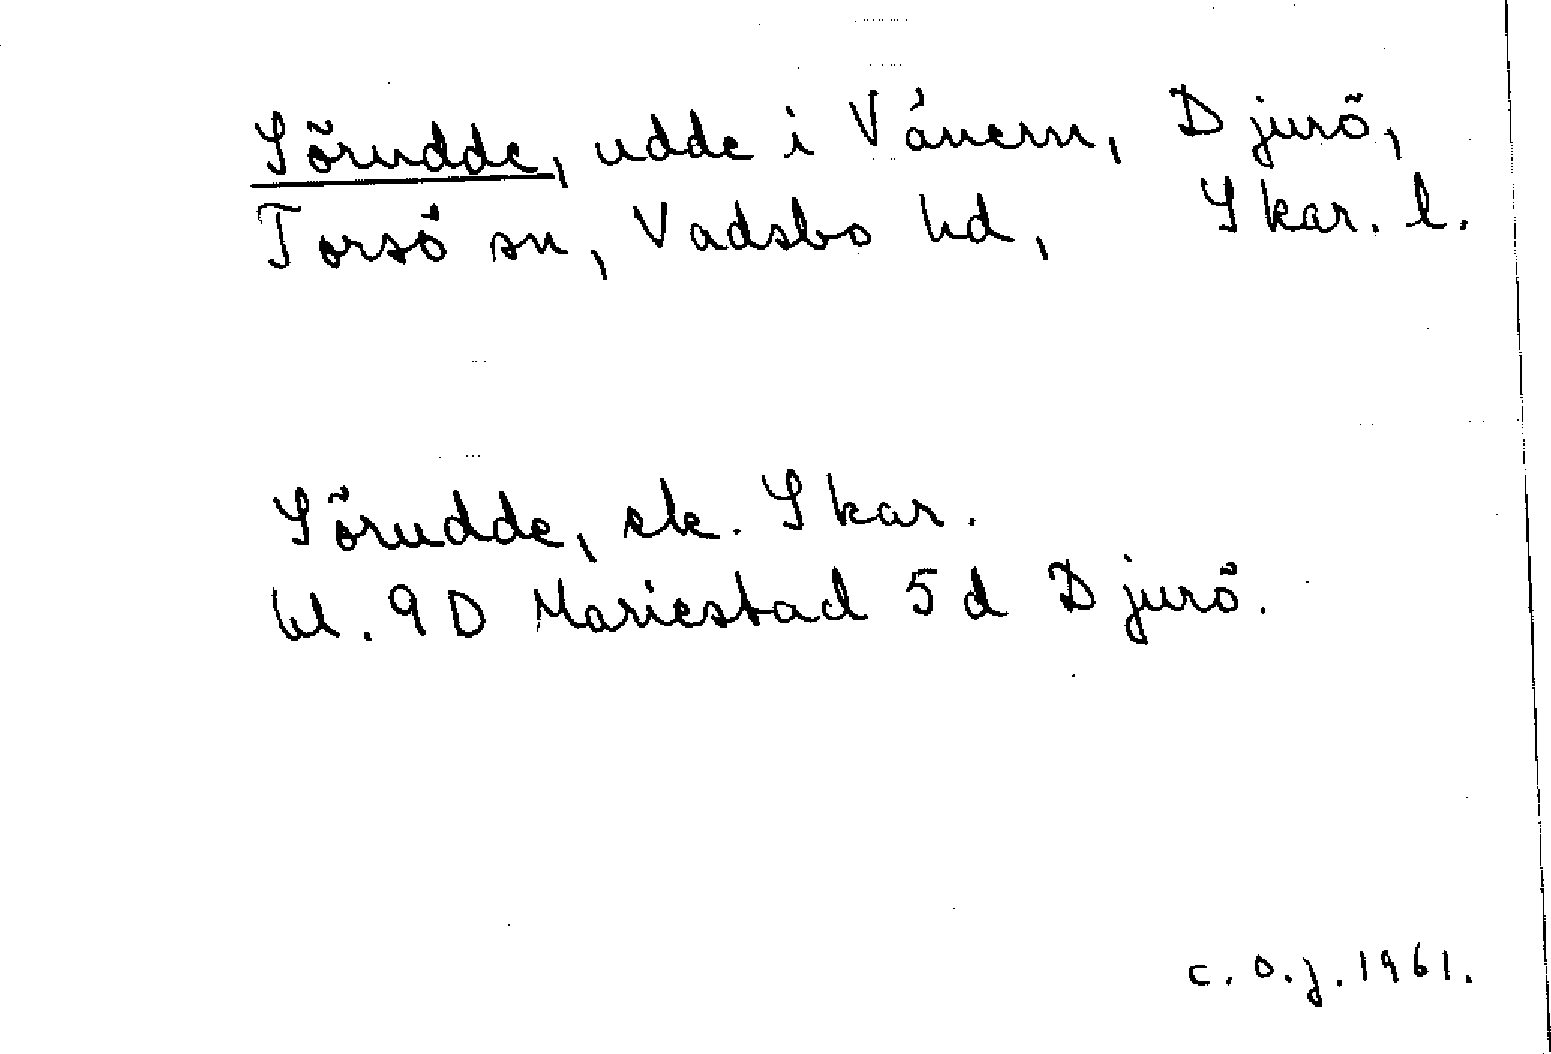 Sörudde, udde i Vänern, Djurö,
Torsö sn, Vadsbo hd, Skar. l.
Sörudde, ek. Skar.
bl. 9D Mariestad 5d Djurö.
C.O.J. 1961.